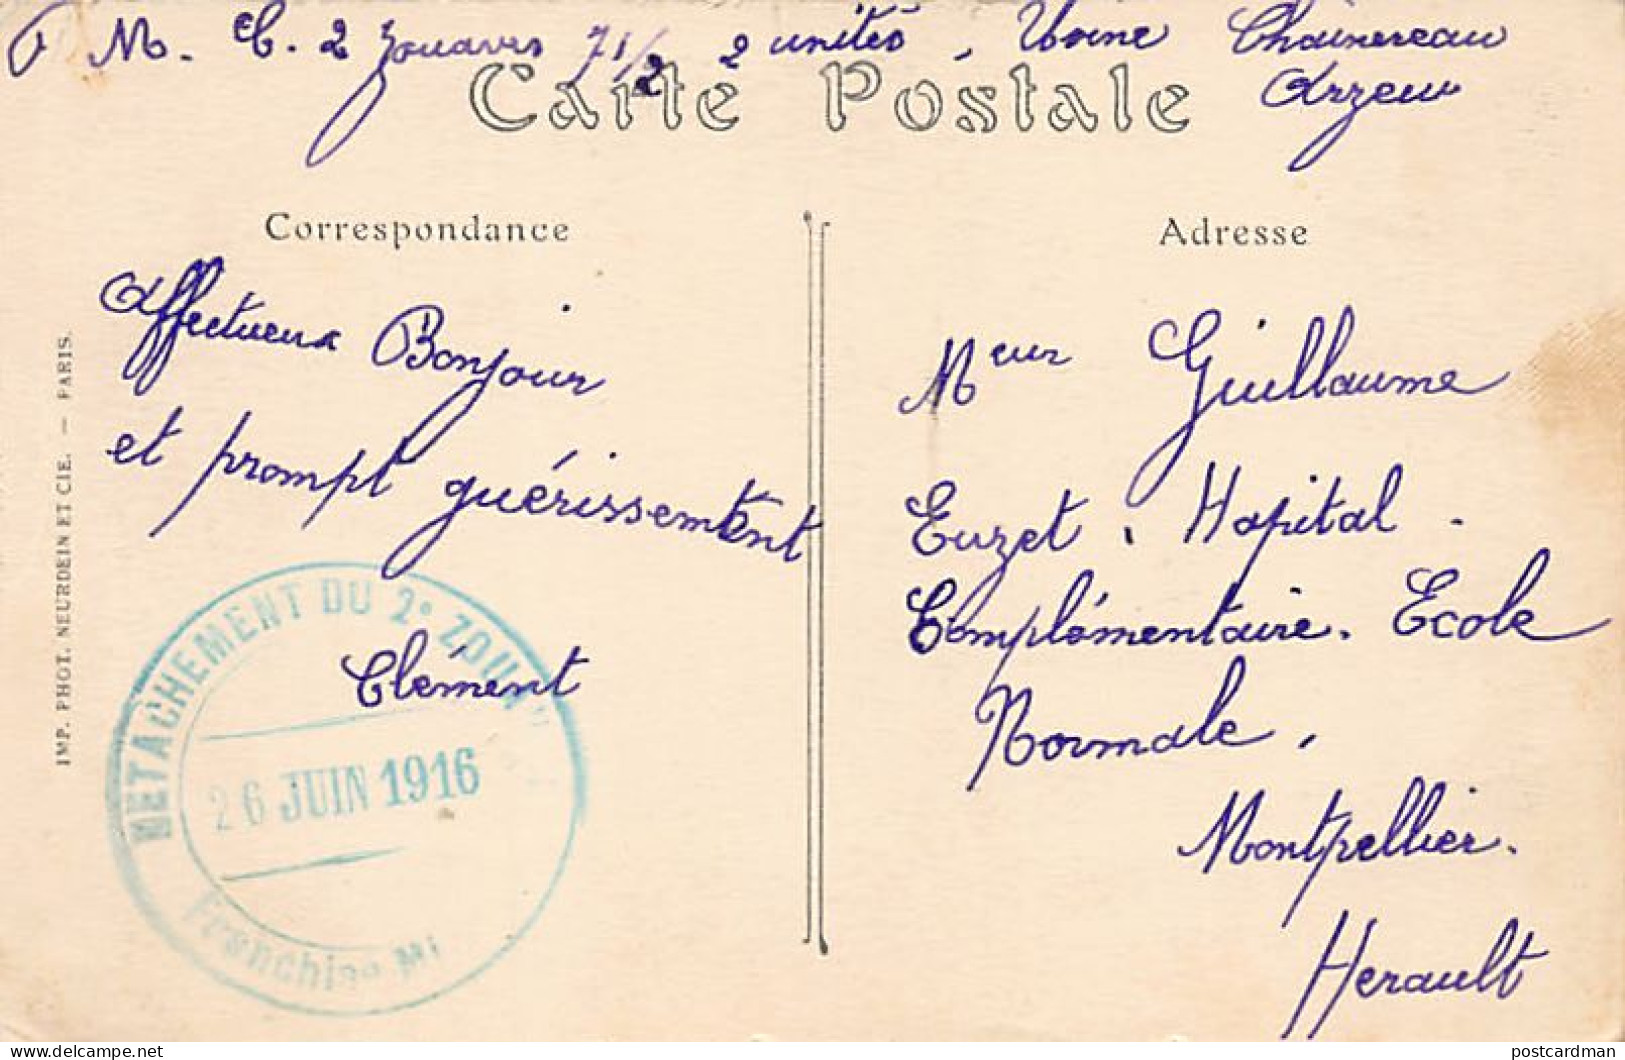 M. C. 2 Zouaves 71/2 2 unités, Usine Chainereau
Arzew
Carte Postale
Correspondance
Adresse
Affectueux Bonjour
et prompt guérissement
Clément
Meur Guillaume
Euzet, Hopital -
Complémentaire. Ecole
Normale,
Montpellier.
Herault
IMP. PHOT. NEURDEIN ET CIE. — PARIS.
DETACHEMENT DU 2e ZOUA
26 JUIN 1916
Franchise Mi
postcardman